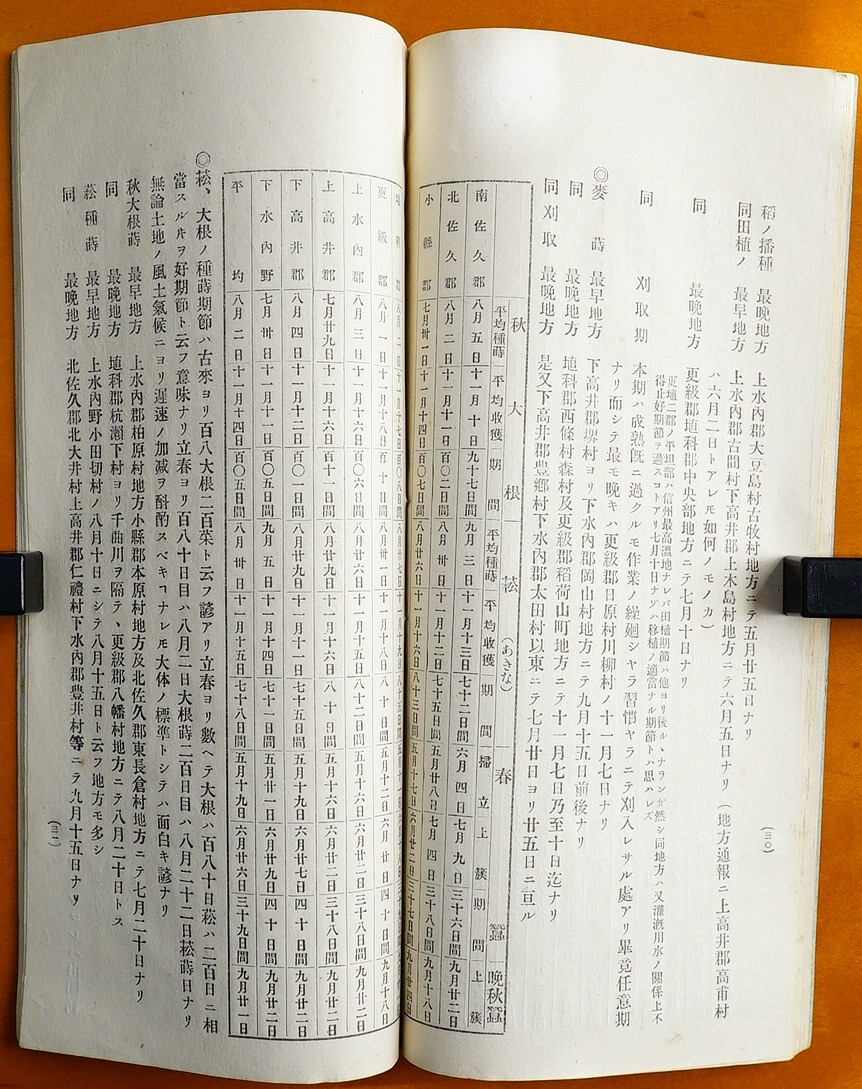 稻ノ播種　最晩地方　上水內郡大豆島村古牧村地方ニテ五月廿五日ナリ
同田植ノ　最早地方　上水內郡古間村下高井郡上木島村地方ニテ六月五日ナリ（地方通報ニ上高井郡高甫村
ハ六月二日トアレ𪜈如何ノモノカ）
同　最晩地方　更級郡埴科郡中央部地方ニテ七月十日ナリ
更埴二郡ノ平坦部ハ信州最高溫地ナレバ田植期節ハ他ヨリ後ル、ナランガ然シ同地方ハ又灌漑用水ノ關係上不
得止好期節ヲ過スコトアリ七月十日ナゾハ移植ノ適當ナル期節トハ思ハレズ
同　刈取期　本期ハ成熟旣ニ過クルモ作業ノ繰廻シヤラ習慣ヤラニテ刈入レサル處アリ畢竟任意期
ナリ而シテ最モ晩キハ更級郡日原村川柳村ノ十一月七日ナリ
◎麥蒔　最早地方　下高井郡堺村ヨリ下水內郡岡山村地方ニテ九月十五日前後ナリ
同　最晩地方　埴科郡西條村森村及更級郡稻荷山町地方ニテ十一月七日乃至十日迄ナリ
同刈取　最晩地方　是又下高井郡豊鄕村下水內郡太田村以東ニテ七月廿日ヨリ廿五日ニ亘ル
（三〇）
秋大根　菘（あきな）　春蠶　晩秋蠶
平均種蒔　平均收獲　期間　平均種蒔　平均收獲　期間　掃立　上簇　期間　上簇
南佐久郡　八月五日　十一月十日　九十七日間　九月三日　十一月十三日　七十二日間　六月四日　七月九日　三十六日間　九月廿二日
北佐久郡　八月二日　十一月十一日　百〇二日間　八月卅日　十一月十二日　七十五日間　五月廿八日　七月四日　三十八日間　九月十八日
小縣郡　七月卅一日　十一月十四日　百〇七日間　八月廿六日　十一月十六日　八十三日間　五月十七日　六月廿二日　三十七日間　九月廿四日
埴科郡　八月二日　十一月十七日　百〇八日間
更級郡　八月一日　十一月十八日　百十日間　八月卅一日　十一月十九日　八十五日間　五月十二日　六月廿日　四十日間　九月十八日
上水內郡　八月三日　十一月十八日　百〇六日間　八月廿七日　十一月十六日　八十二日間　五月十六日　六月廿二日　三十八日間　九月廿二日
上高井郡　七月廿九日　十一月十六日　百十一日間　八月廿九日　十一月十六日　八十日間　五月十六日　六月廿二日　三十八日間　九月廿二日
下高井郡　八月四日　十一月十二日　百〇一日間　八月廿九日　十一月十一日　七十五日間　五月十九日　六月廿七日　四十日間　九月廿二日
下水內野　七月卅日　十一月十一日　百〇五日間　九月五日　十一月十四日　七十一日間　五月廿一日　六月廿九日　四十日間　九月廿二日
平均　八月二日　十一月十四日　百〇五日間　八月卅日　十一月十五日　七十八日間　五月十九日　六月廿六日　三十九日間　九月廿一日
◎菘、大根ノ種蒔期節ハ古來ヨリ百八大根二百菜ト云フ諺アリ立春ヨリ數ヘテ大根ハ百八十日菘ハ二百日ニ相
當スル𪜈ヲ好期節ト云フ意味ナリ立春ヨリ百八十日目ハ八月二日大根蒔二百日目ハ八月二十二日菘蒔日ナリ
無論土地ノ風土氣候ニヨリ遲速ノ加减ヲ酙酌スベキヿナレ𪜈大体ノ標準トシテハ面白キ諺ナリ
秋大根蒔　最早地方　上水內郡柏原村地方小縣郡本原村地方及北佐久郡東長倉村地方ニテ七月二十日ナリ
同　最晩地方　埴科郡杭瀨下村ヨリ千曲川ヲ隔テ、更級郡八幡村地方ニテ八月二十日トス
菘種蒔　最早地方　上水內野小田切村ノ八月十日ニシテ八月十五日ト云フ地方モ多シ
同　最晩地方　北佐久郡北大井村上高井郡仁禮村下水內郡豊井村等ニテ九月十五日ナリ
（三一）